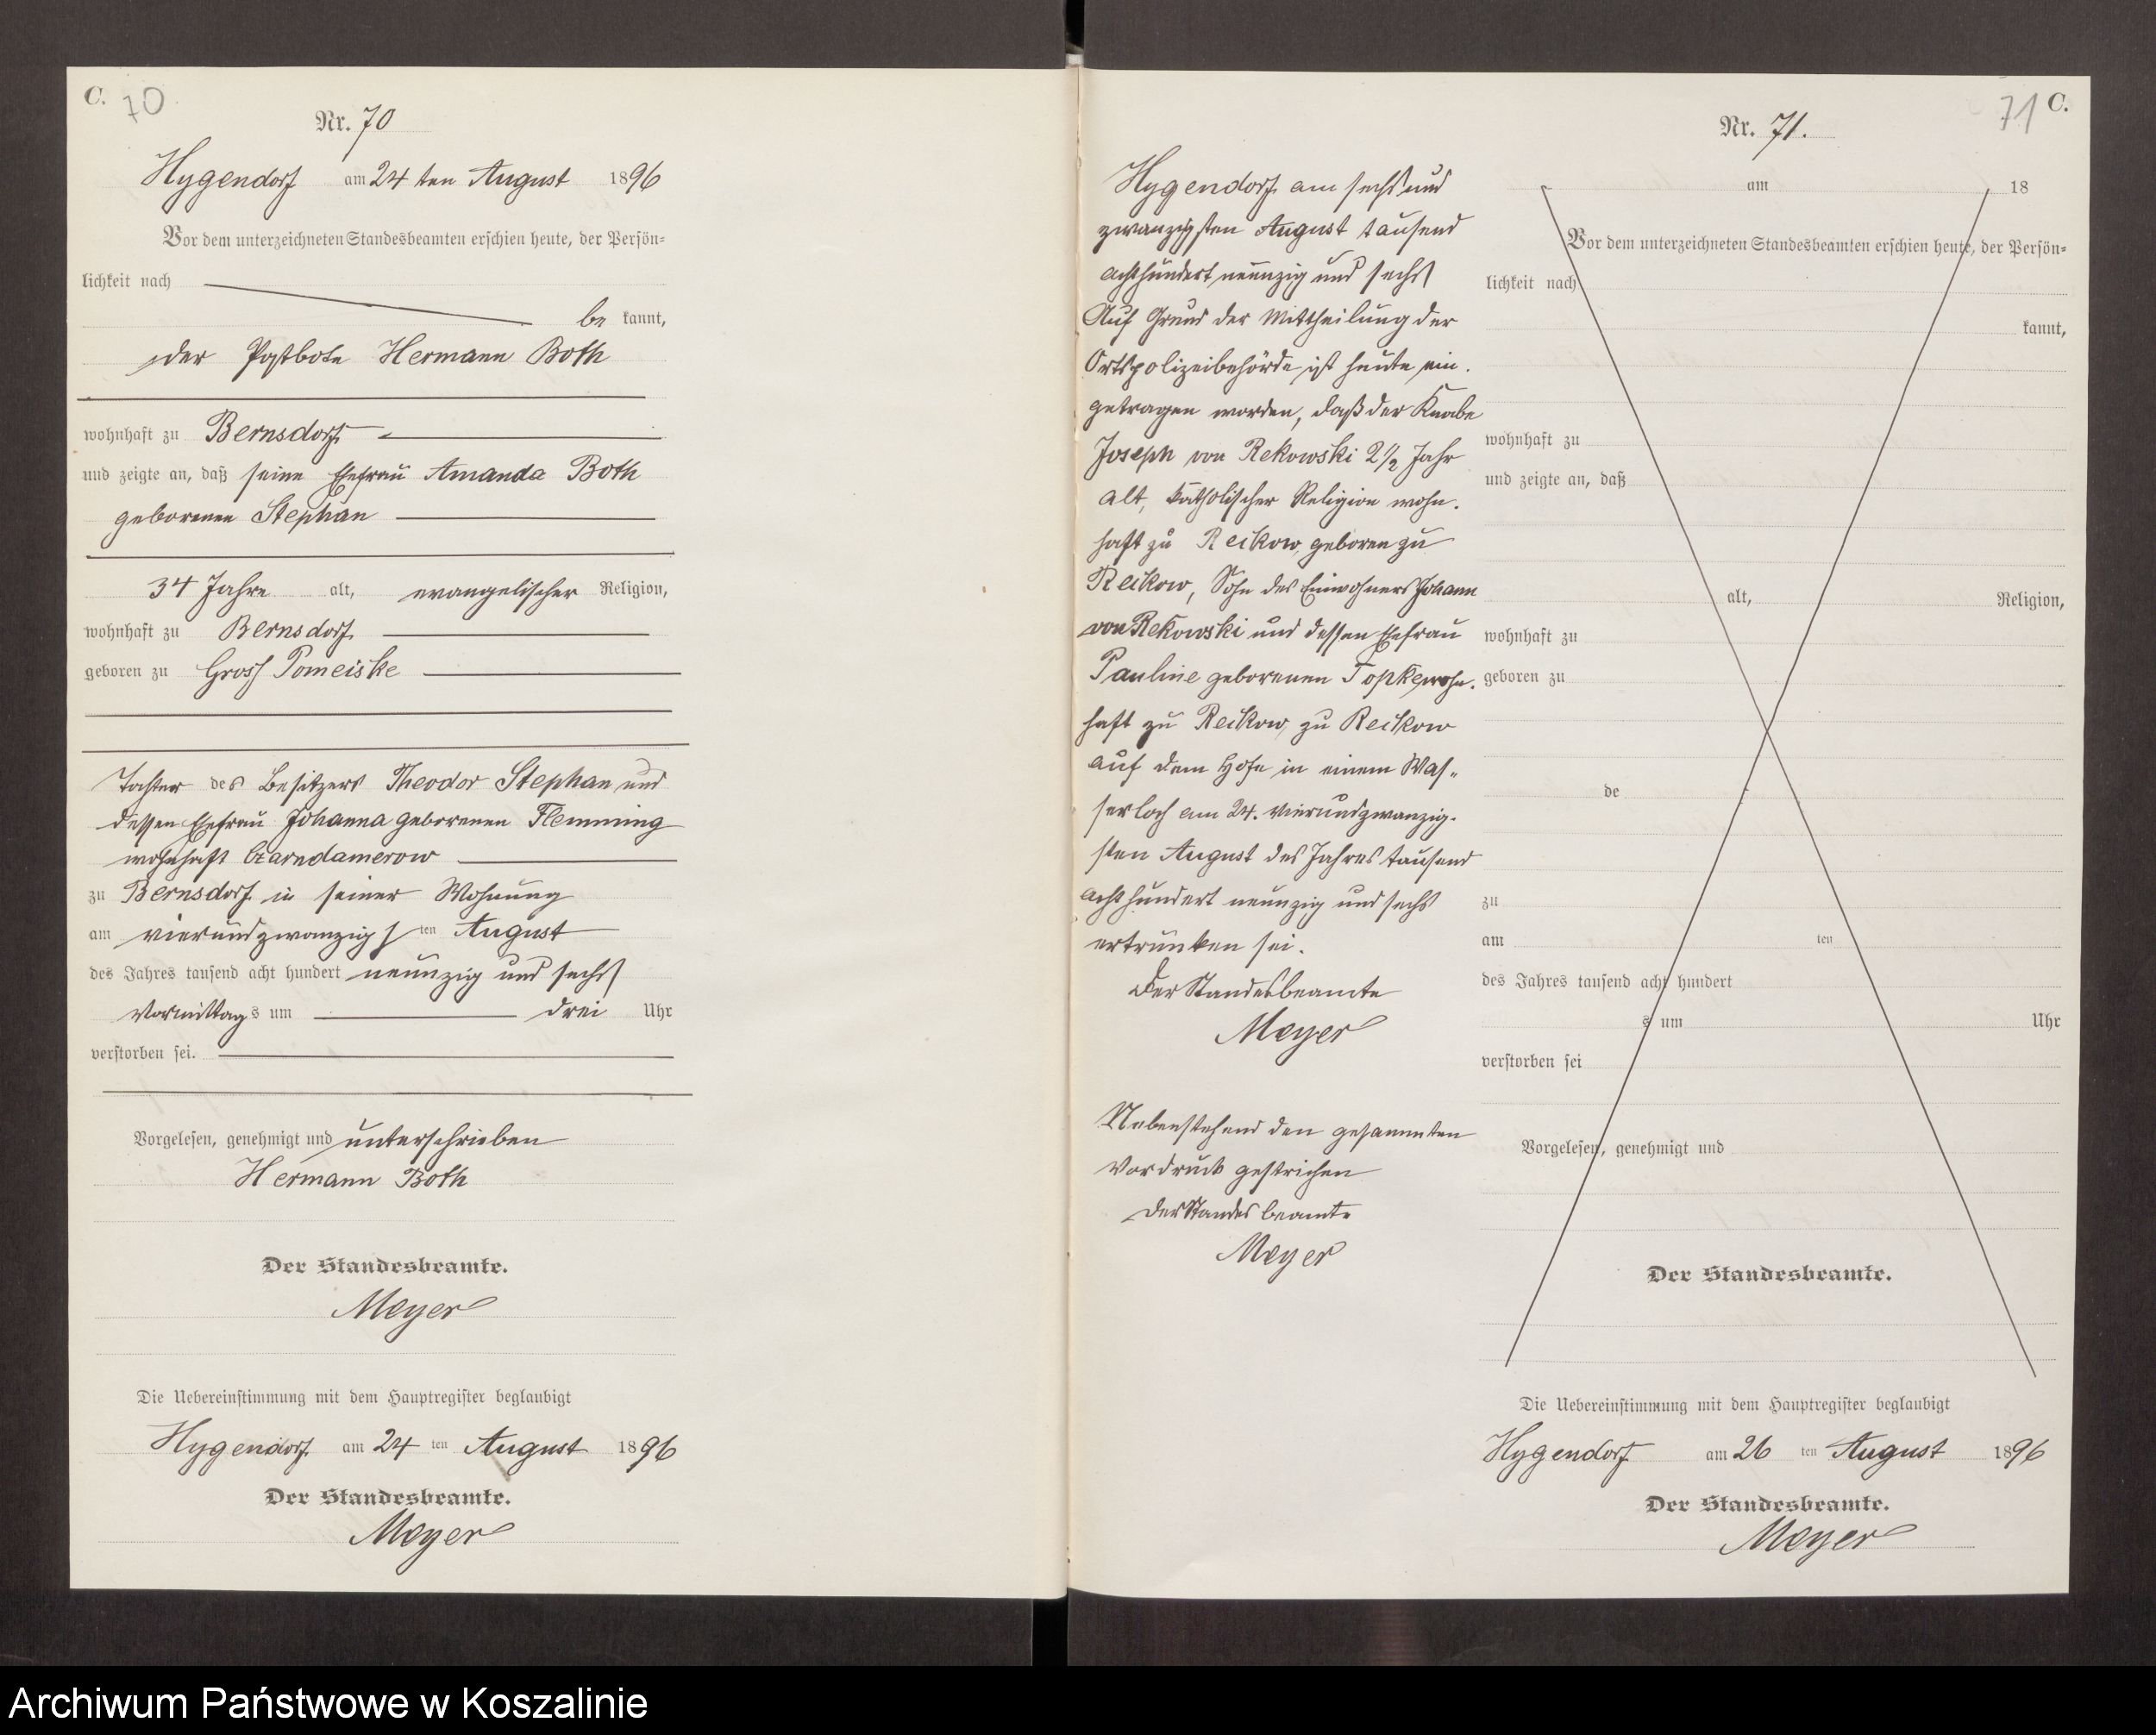 C. 70
Nr. 70
Hygendorf am 24 ten August 1896
Vor dem unterzeichneten Standesbeamten erschien heute, der Persön=
lichkeit nach
be kannt,
der Postbote Hermann Both
wohnhaft zu Bernsdorf
und zeigte an, daß seine Ehefrau Amanda Both
geborenen Stephan
34 Jahre alt, evangelischer Religion,
wohnhaft zu Bernsdorf
geboren zu Gross Pomeiske
Tochter des Besitzers Theodor Stephan und
dessen Ehefrau Johanna geborenen Flemming
wohnhaft Czarndamerow
zu Bernsdorf in seiner Wohnung
am vierundzwanzigsten August
des Jahres tausend acht hundert neunzig und sechs
Vormittags um drei Uhr
verstorben sei.
Vorgelesen, genehmigt und unterschrieben
Hermann Both
Der Standesbeamte.
Meyer
Die Uebereinstimmung mit dem Hauptregister beglaubigt
Hygendorf am 24 ten August 1896
Der Standesbeamte.
Meyer
71 C.
Nr. 71.
Hygendorf am sechs und
zwanzigsten August tausend
achthundert neunzig und sechs
Auf Grund der Mittheilung der
Ortspolizeibehörde ist heute ein.
getragen worden, daß der Knabe
Joseph von Rekowski 2 1/2 Jahr
alt, katholischer Religion wohn.
haft zu Reckow, geboren zu
Reckow, Sohn des Einwohners Johann
von Rekowski und dessen Ehefrau
Pauline geborenen Topke, wohn.
haft zu Reckow, zu Reckow
auf dem Hofe in einem Was„
serloch am 24. vierundzwanzig.
sten August des Jahres tausend
acht hundert neunzig und sechs
ertrunken sei.
Der Standesbeamte
Meyer
Nebenstehend den gesammten
Vordruck gestrichen
Der Standesbeamte
Meyer
am 18
Vor dem unterzeichneten Standesbeamten erschien heute, der Persön=
lichkeit nach
kannt,
wohnhaft zu
und zeigte an, daß
alt, Religion,
wohnhaft zu
geboren zu
de
zu
am ten
des Jahres tausend acht hundert
s um Uhr
verstorben sei
Vorgelesen, genehmigt und
Der Standesbeamte.
Die Uebereinstimmung mit dem Hauptregister beglaubigt
Hygendorf am 26 ten August 1896
Der Standesbeamte.
Meyer
Archiwum Państwowe w Koszalinie